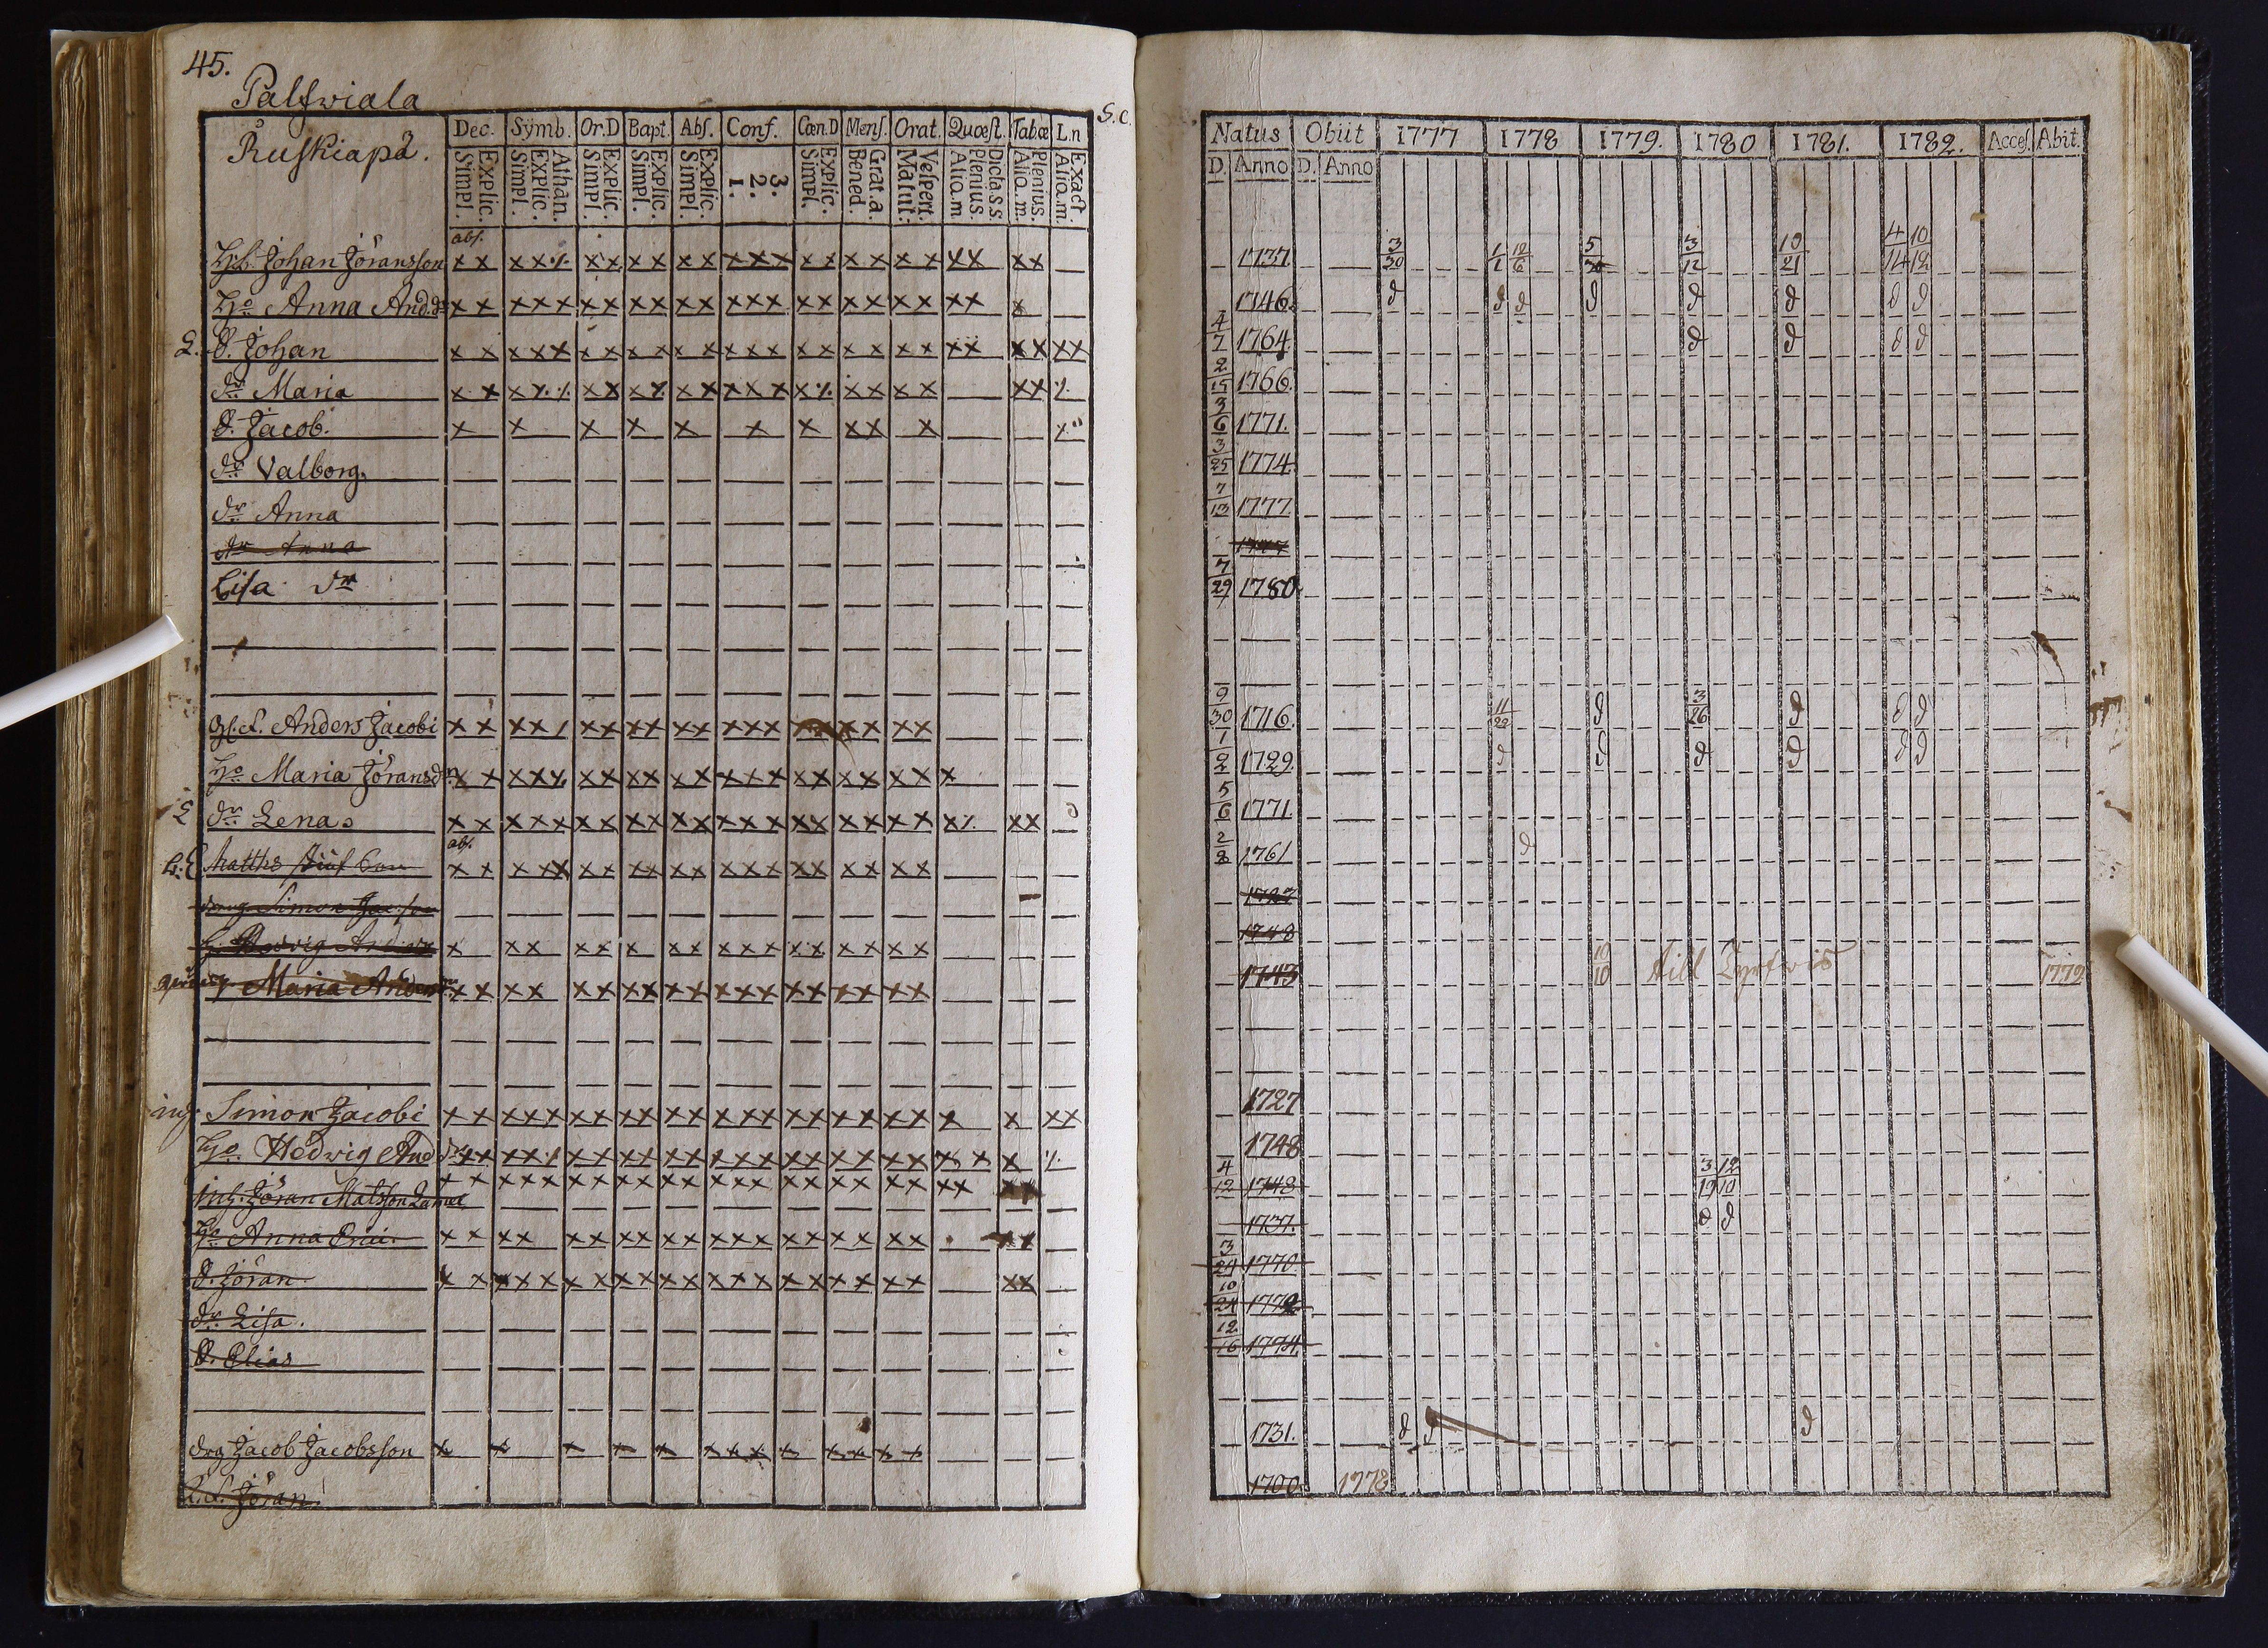 45.
Palfwiala
Ruskiapä.
Dec. Symb. Or.D Bapt. Abs. Conf. Cœn.D Mens. Orat. Quæst. Tabæ L.n
S.c.
Explic. Simpl.
Athan. Explic. Simpl.
Explic. Simpl.
Explic. Simpl.
Explic. Simpl.
3. 2. 1.
Explic. Simpl.
Grat.a. Bened.
Vespert. Matut.
Dicta.s.s. Plenius. Aliq.m.
Plenius. Aliq.m.
Exact. Aliq.m.
abs.
Johan Jöransson x x x x ٪ x x x x x x x x x x x x x x x x x x x
Ho Anna And.dr x x x x x x x x x x x x x x x x x x x x x x x
L. S. Johan x x x x x x x x x x x x x x x x x x x x x x x x x x
dr Maria x x x ٪ ٪ x x x ٪ x x x x x x ٪ x x x x x x ٪
S. Jacob. x x x x x x x x x x x
dr Valborg.
dr Anna
dr Anna
Lisa dr
Anders Jacobi x x x x / x x x x x x x x x x x x x x
Ho Maria Jöransd. x x x x ٪ x x x x x x x x x x x x x x x x
L dr Lena x x x x x x x x x x x x x x x x x x x x x ٪ x x
abs.
Matths x x x x x x x x x x x x x x x x x x x
Simon Jac.son
x x x x x x x x x x x x x x x x x
Maria And x x x x x x x x x x x x x x x x x x x
inh. Simon Jacobi x x x x x x x x x x x x x x x x x x x x x x x x
Ho Hedwig And dr x x x x / x x x x x x x x x x x x x x x x x x ٪
inh. Jöran Matsson x x x x x x x x x x x x x x x x x x x x x x x
Ho Anna x x x x x x x x x x x x x x x x x x x x
S. Jöran x x x x x x x x x x x x x x x x x x x x x
dr Lisa.
S. Elias
drg Jacob Jacobsson x x x x x x x x x x x x x
Jöran
Natus Obiit 1777 1778 1779. 1780 1781. 1782. Acces. Abit.
D. Anno D. Anno
1737. 3/30 1/1 12/6 5/30 3/12 10/21 4/14 10/12
1746. d d d d d d d d
4/7 1764 d d d d
2/15 1766.
3/6 1771.
3/25 1774
7/13 1777.
1777
7/29 1780
9/30 1716. 11/22 d 3/26 d d d
1/2 1729. d d d d d d
5/6 1771.
2/8 1761 d
1727
1748
1743 10/10 1772
1727
1748
4/12 1748 3/19 12/10
1737. d d
3/29 1770
10/24 1772
12/16 1774.
1731. d d d
1700. 1778